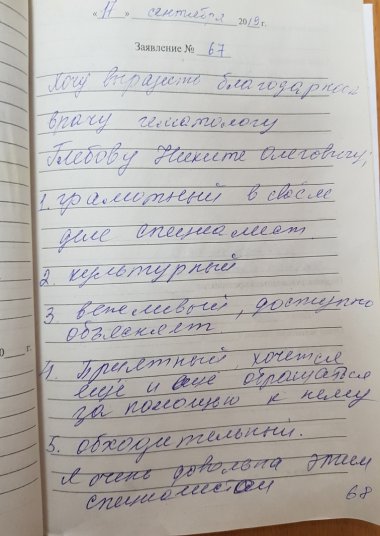 « 17 » сентября 2019 г.
Заявление № 67
Хочу выразить благодарность
врачу гематологу
Глебову Никите Олеговичу,
1. грамотный в своём
деле специалист.
2. культурный
3. вежливый, доступно
объясняет
4. Приятный, хочется
еще и еще обращаться
за помощью к нему
5. обходительный.
Я очень довольна этим
специалистом
68